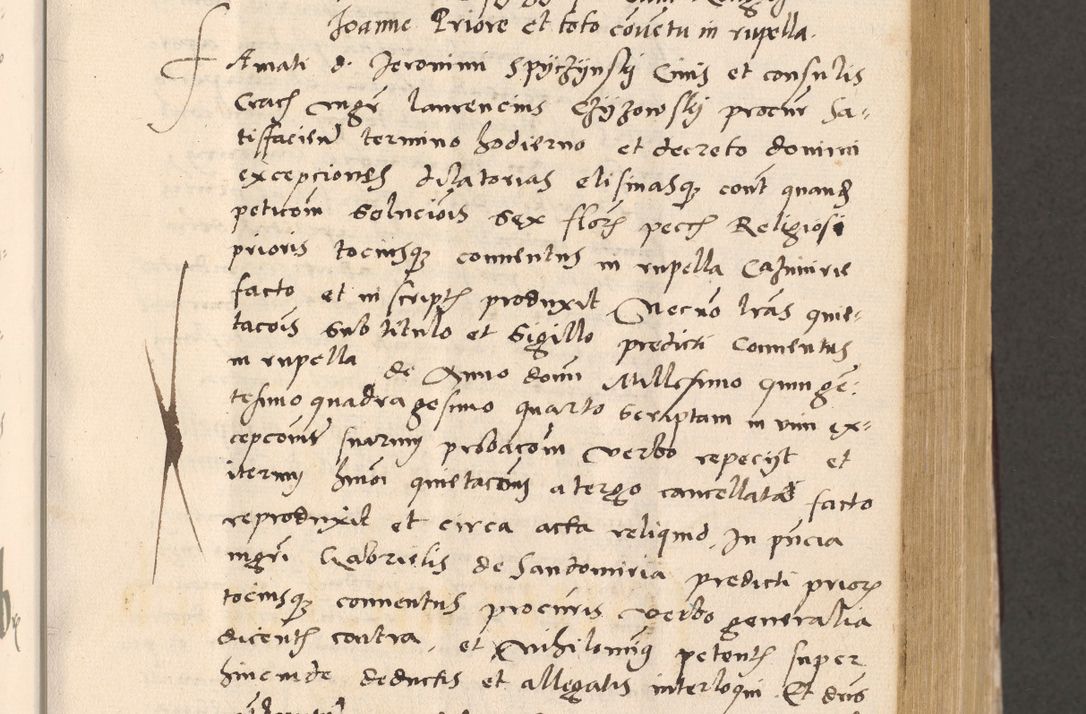 Joanne Priore et toto conventu in rupella.
Amati d. Jeronimi Spÿczÿnskÿ Civis et consulis
Cracs mgr laurencius Czÿzowskÿ procur Sa-
tisfaciend termino hodierno et decreto domini
excepciones dilatorias elisivasq cont quand
peticom solucois sex flors peccs Religiosi
prioris tociusq conventus in rupella Cazimirie
facto et in scripts produxit Necno lras quie-
tacois sub titulo et sigillo predicti Conventus
in rupella de Anno domi Millesimo quinge-
tesimo quadragesimo quarto scriptam in vim ex-
cepcois suarum probacom verbo repeciit et
iterum hmoi quietacom a tergo cancellatas facto
reproduxit et circa acta reliquid. In pncia
mgri Gabrielis de Sandomiria predicti priors
tociusq conventus procuris verbo generalia
dicents contra, et Nihilomig petents super
hincinde deductis et allegatis interloqui Et dns